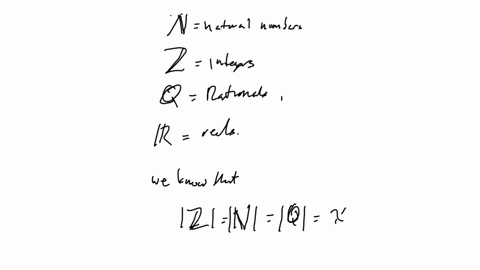 ℕ = natural numbers
ℤ = integers
ℚ = Rationals,
ℝ = reals.
we know that
|ℤ| = |ℕ| = |ℚ| =